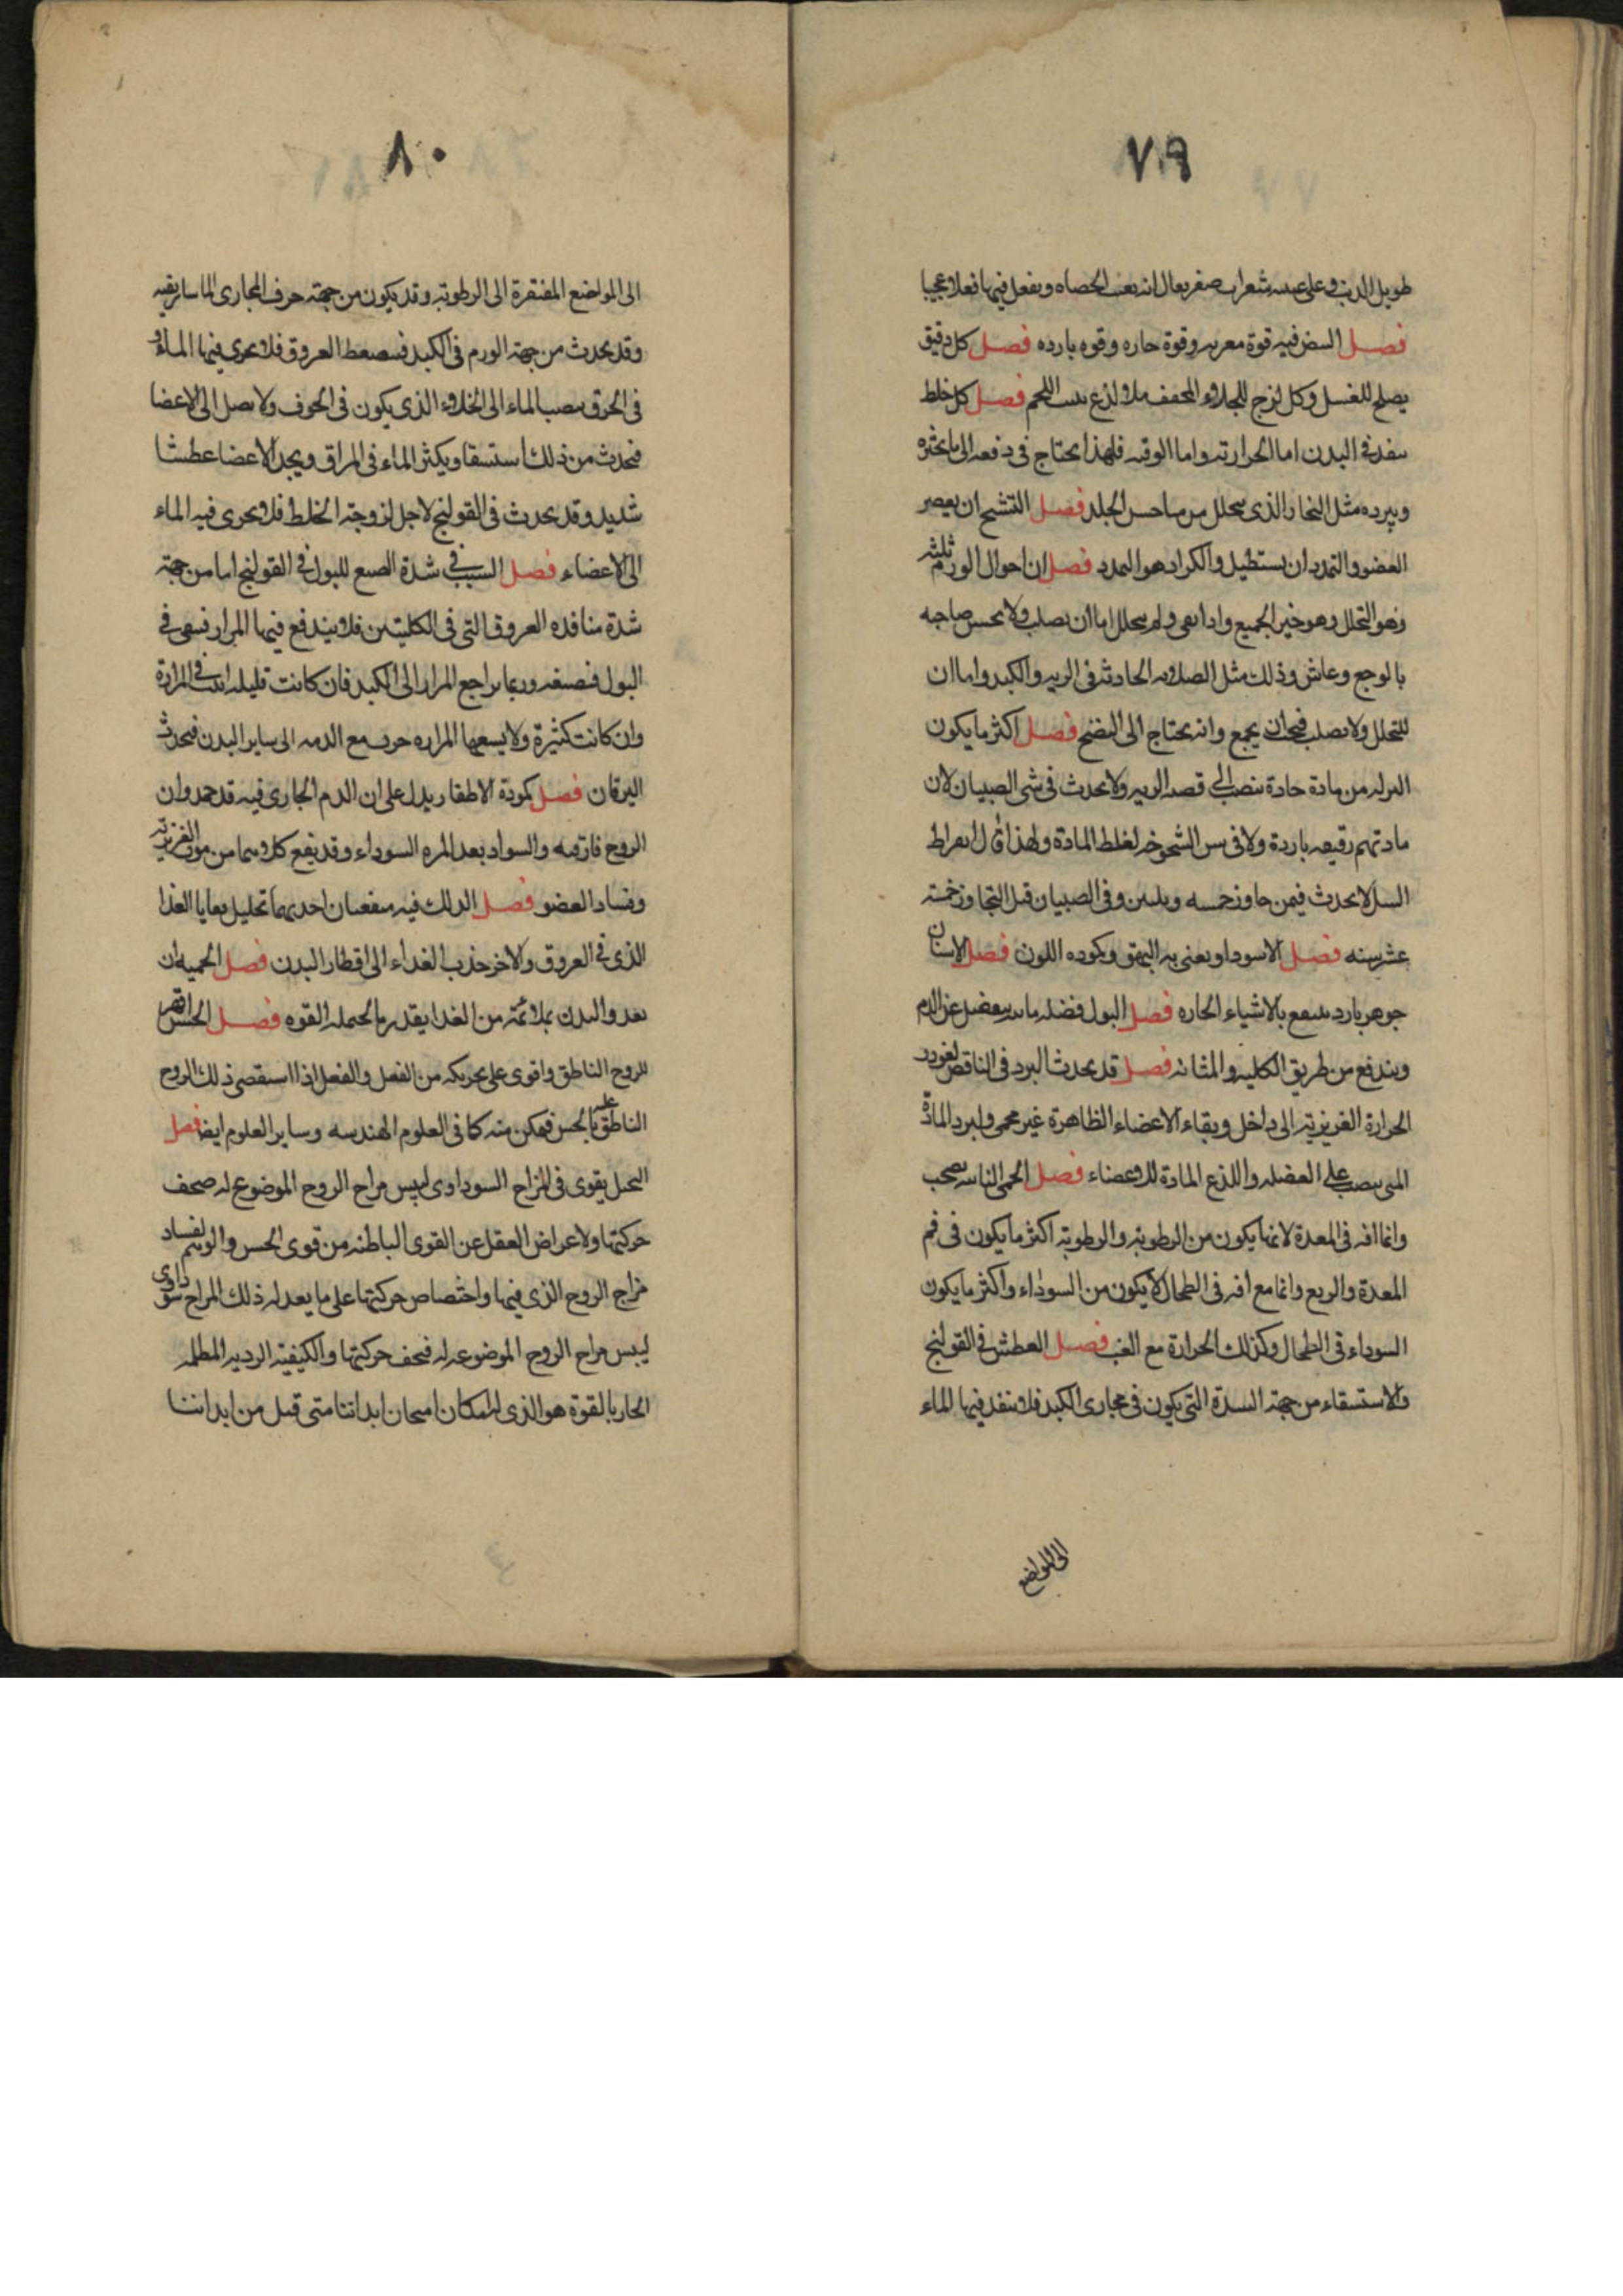 ٧٩
طويل الذنب وعلى عينيه شعرات صفر يقال انه يفتت الحصاه ويفعل فيها فعلا عجيبا
فصل البيض فيه قوة مغريه وقوة حاره وقوه بارده فصل كل دقيق
يصلح للغسل وكل لزج للجلاو المجفف بلا لذع ينبت اللحم فصل كل خلط
ينفذ في البدن اما الحرارته واما الرقته فلهذا يحتاج في دفعه الى ما يخثره
ويبرده مثل البخار الذي يتحلل من الجلد فصل التشنج ان يقصر
العضو والتمدد ان يستطيل والكزاز هو التمدد فصل ان احوال الورم ثلثه
وهو التحلل وهو خير الجميع واذا بقى ولم يتحلل اما ان يصلب ولا يحس صاحبه
بالوجع وعاش وذلك مثل الصلابه الحادثه في الريه والكبد واما ان
لا يتحلل ولا يصلب فيجب ان يجمع وانه يحتاج الى النضج فصل اكثر ما يكون
النزله من مادة حادة تنصب الى قصبه الريه ولا يحدث في سن الصبيان لان
مادتهم رقيقه باردة ولا في سن الشيخوخه لغلظ المادة ولهذا قال بقراط
السل لا يحدث فيمن جاوز خمسه وثلثين وفي الصبيان قبل التجاوز خمسة
عشر سنه فصل الاسود ويعنى به البهق وكموده اللون فصل الاسنان
جوهر بارد ينتفع بالاشياء الحاره فصل البول فضله مائيه ينفصل عن الدم
ويندفع من طريق الكليه والمثانه فصل قد يحدث البرد في الناقض لغور
الحرارة الغريزية الى داخل وبقاء الاعضاء الظاهرة غير محمى ولبرد المادة
التى ينصب على العضله واللذع المادة للاعضاء فصل الحمى النائبه يصحب
وانما افه في المعدة لانها يكون من الرطوبة والرطوبة اكثر ما يكون في فم
المعدة والربع وانما مع افه في الطحال لا يكون من السوداء واكثر ما يكون
السوداء في الطحال وكذلك الحرارة مع الغب فصل العطش في القولنج
والاستسقاء من جهة السدة التي يكون في مجارى الكبد فلا ينفذ فيها الماء
الى المواضع
٨٠
الى المواضع المفتقرة الى الرطوبة وقد يكون من جهة حرف المجارى الماساريقيه
وقد يحدث من جهة الورم في الكبد فيضغط العروق فلا يجرى فيها الماء و
في الخرق ينصب الماء الى الخلاء الذي يكون في الجوف ولا يصل الى الاعضا
فيحدث من ذلك استسقا ويكثر الماء في المراق ويجد الاعضا عطشا
شديد وقد يحدث في القولنج لاجل لزوجة الخلط فلا يجرى فيه الماء
الى الاعضاء فصل السبب في شدة الصبغ للبول في القولنج اما من جهة
شدة منافذه العروق التي في الكليتين فلا يندفع فيها المرار فيبقى في
البول فيصبغه وربما يراجع المرار الى الكبد فان كانت قليله في المرارة
وان كانت كثيرة ولا يسعها المراره جرت مع الدم الى ساير البدن فيحدث
اليرقان فصل كمودة الاظفار يدل على ان الدم الجارى فيه قد جمد وان
الروح فارقته والسواد بعد المره السوداء وقد يقع كلاهما من موت الغريزية
وفساد العضو فصل الدلك فيه منفعتان احديهما تحليل بقايا الغذا
الذي في العروق والاخر جذب الغذاء الى اقطار البدن فصل الحميه ان
يغذو البدن بملائمة من الغذا بقدر ما يحتمله القوه فصل الحس اقهر
للروح الناطق واقوى على تحريكه من الفعل والفعل اذا استقصى ذلك الروح
الناطق عليه بالحس فيمكن منه كما في العلوم الهندسه وساير العلوم ايضا فصل
التخيل يقوى في المزاج السوداوى ليبس مزاج الروح الموضوع له فيخف
حركتها ولاعراض العقل عن القوى الباطنه من قوى الحس والوهم لفساد
مزاج الروح الذي فيها واختصاص حركتها على ما يعد له ذلك المزاج سوداوى
ليبس مزاج الروح الموضوعه له فيخف حركتها والكيفية الرديه المظلمه
الحار بالقوة هو الذي امتحان ابداننا متى قبل من ابداننا